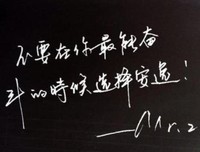 不要在你最能奋
斗的時候选择安逸！
——Mr.Z